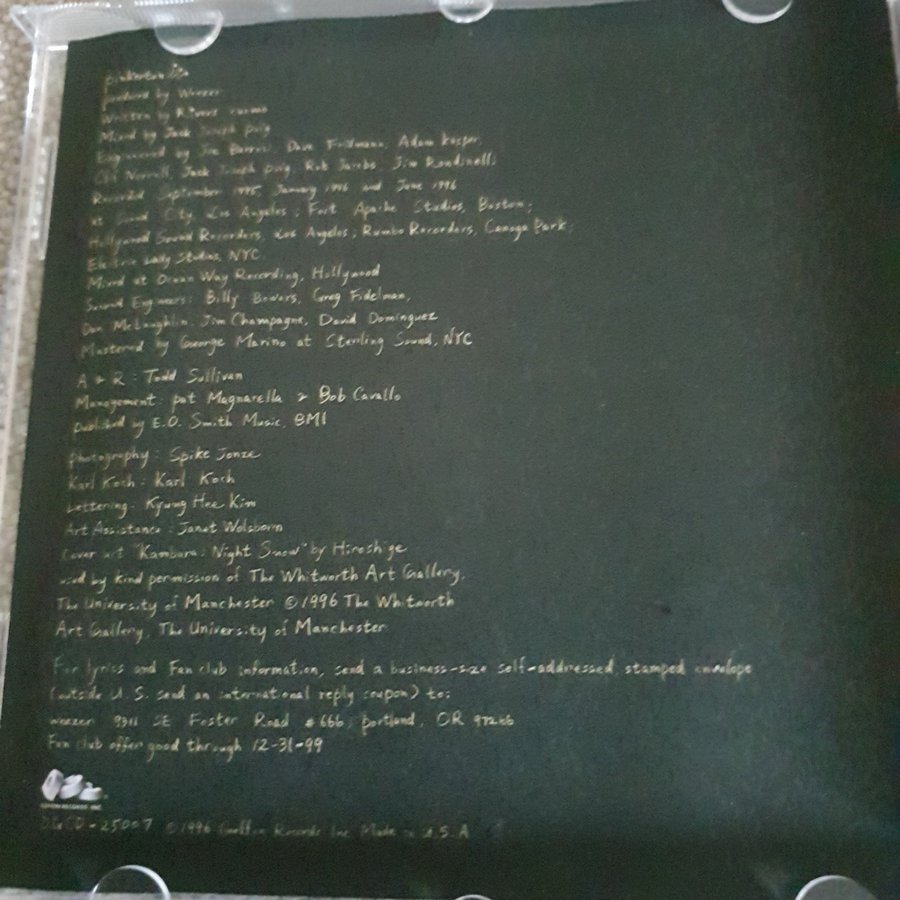 pinkerton
produced by Weezer
Written by Rivers Cuomo
Mixed by Jack Joseph Puig
Engineered by Joe Barresi, Dave Fridmann, Adam Kasper,
Clif Norrell, Jack Joseph Puig, Rob Jacobs, Jim Rondinelli
Recorded September 1995, January 1996 and June 1996
at Sound City, Los Angeles; Fort Apache Studios, Boston;
Hollywood Sound Recorders, Los Angeles; Rumbo Recorders, Canoga Park;
Electric Lady Studios, NYC
Mixed at Ocean Way Recording, Hollywood
Sound Engineers: Billy Bowers, Greg Fidelman,
Dan McLaughlin, Jim Champagne, David Dominguez
Mastered by George Marino at Sterling Sound, NYC
A & R: Todd Sullivan
Management: pat Magnarella & Bob Cavallo
published by E.O. Smith Music, BMI
photography: Spike Jonze
Karl Koch: Karl Koch
Lettering: Kyung Hee Kim
Art Assistance: Janet Wolsborn
Cover art "Kambara: Night Snow" by Hiroshige
used by kind permission of The Whitworth Art Gallery,
The University of Manchester ©1996 The Whitworth
Art Gallery, The University of Manchester
For lyrics and Fan club information, send a business-size self-addressed stamped envelope
(outside U.S. send an international reply coupon) to:
weezer SE Foster Road #666, portland, OR
Fan club offer good through 12-31-99
GEFFEN RECORDS INC.
DGCD-25007 ©1996 Geffen Records Inc. Made in U.S.A